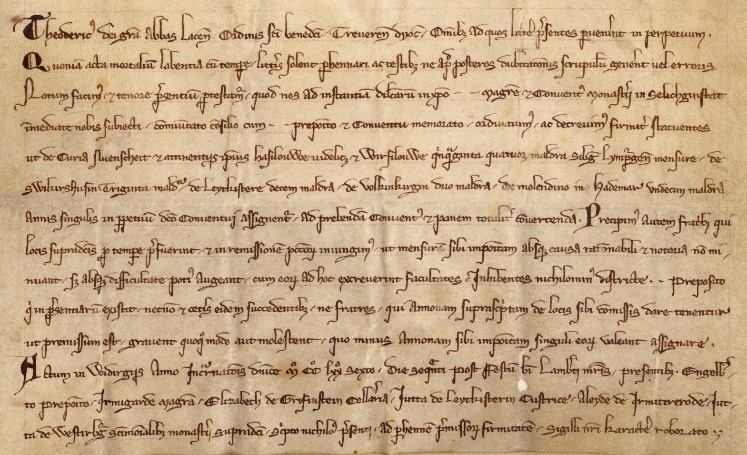 Theoderic' dei gra Abbas Lacen Ordinis sci benedci . Treueren dyoc . Omib; ad quos littere psentes puenerint in perpetuum .
Quonia acta mortaliu labentia cu tempe . litteris solent phennari ac testib; ne ap posteros dubitationis scrupulu generent uel erroris
Notum facim' & tenore psentiu ptestam' . quod nos ad instantia dilectaru in xpo - - magistre & Conuent' monasterii in Selichginstat
inmediate nobis subiecti . comunicato consilio cum - - preposito & Conuentu memorato . ordinauim' . ac decreuim' firmit' statuentes
ut de Curia Auenscheit & attinentiis ipsius hasilouwe uidelicet & Wirsilouwe quinquaginta quatuor maldra silig' mensure . de
Swikirshusin Triginta maldra . de Leytkistere decem maldra . de Volkinkirgin duo maldra . de molendino in hademar Undecim maldra
Annis singulis in ppetuu dco Conuentui assignent' . ad prebenda Conuent' & panem totalit' conuertenda . Precipim' Autem fratrib; qui
locis supradictis p tempe pfuerint . & in remissione pccor' iniungim' . ut mensura sibi impositam absq; causa rationabili & notoria no mi
nuant . s; absq; difficultate poti' augeant . cum eor' ad hoc excreuerint facultates . Inhibentes nichilomin' districte . - - Preposito
qui psentiaru existit . necnon & cetis eidem succedentib; . ne fratres . qui Annonam suprascriptam de locis sibi comissis dare tenentur
ut premissum est . grauent quoquo modo aut molestent . quo minus Annonam sibi impositam singuli eor' ualeant assignare .
Actum in Wedirgiis Anno Incarnationis dnice M CC LXX Sexto . Die sequenti post Festum bi Lamberti mris . presentib; . Engelber
to preposito . Irmigarde magistra . Elizabeth de Grifinstein Celleraria . Jutta de Leytkisterin Custrice . Aleyde de Irmitrerode . Jut
ta de Westirburg scimonialib; monasterii supradicti . Scripto nichilomin' psenti . ad phenne pmissor' firmitate . Sigilli nri karactere roborato